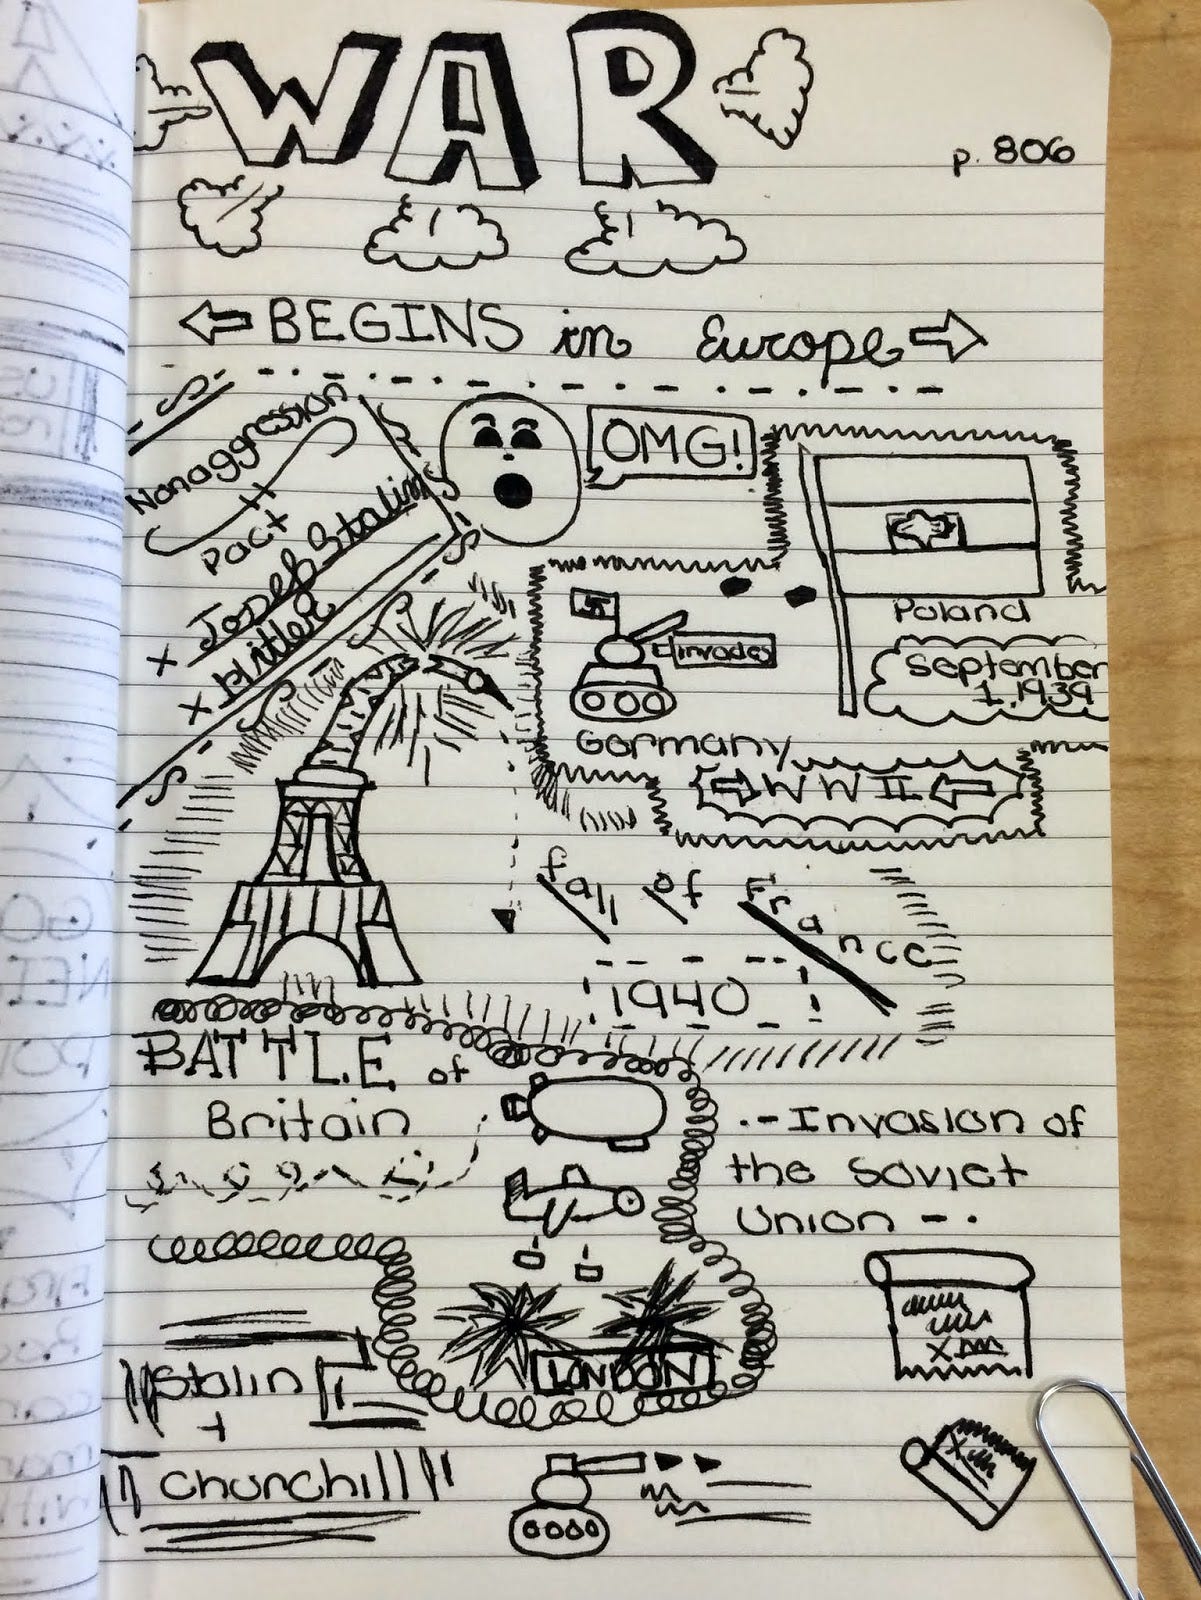 WAR
p. 806
BEGINS in Europe
Nonaggression
Pact
x Josef Stalin
x Hitler
OMG!
Poland
September
1, 1939
invades
Germany
WWII
fall of France
1940
BATTLE of
Britain
Invasion of
the Soviet
Union
LONDON
Stalin
+
Churchill